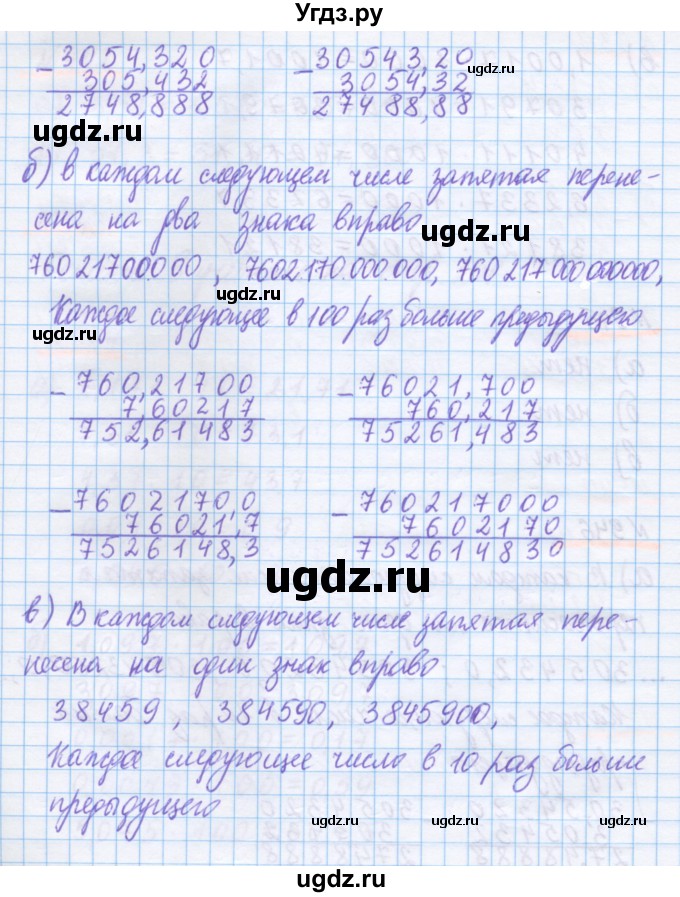 Угдз.ру
3054,320
305,432
2748,888
30543,20
3054,32
27488,88
ugdz.ru
ugdz.ru
б) В каждом следующем числе запятая перене-
сена на два знака вправо
ugdz.ru
76021700000, 7602170.000.000, 760217000000000,
ugdz.ru
Каждое следующее в 100 раз больше предыдущего
ugdz.ru
ugdz.ru
760,21700
7,60217
752,61483
76021,700
760,217
75261,483
7602170,0
76021,7
7526148,3
760217000
7602170
752614830
ugdz.ru
ugdz.ru
в) В каждом следующем числе запятая пере-
несена на один знак вправо
38459, 384590, 3845900,
Каждое следующее число в 10 раз больше
предыдущего
ugdz.ru
ugdz.ru
ugdz.ru
ugdz.ru